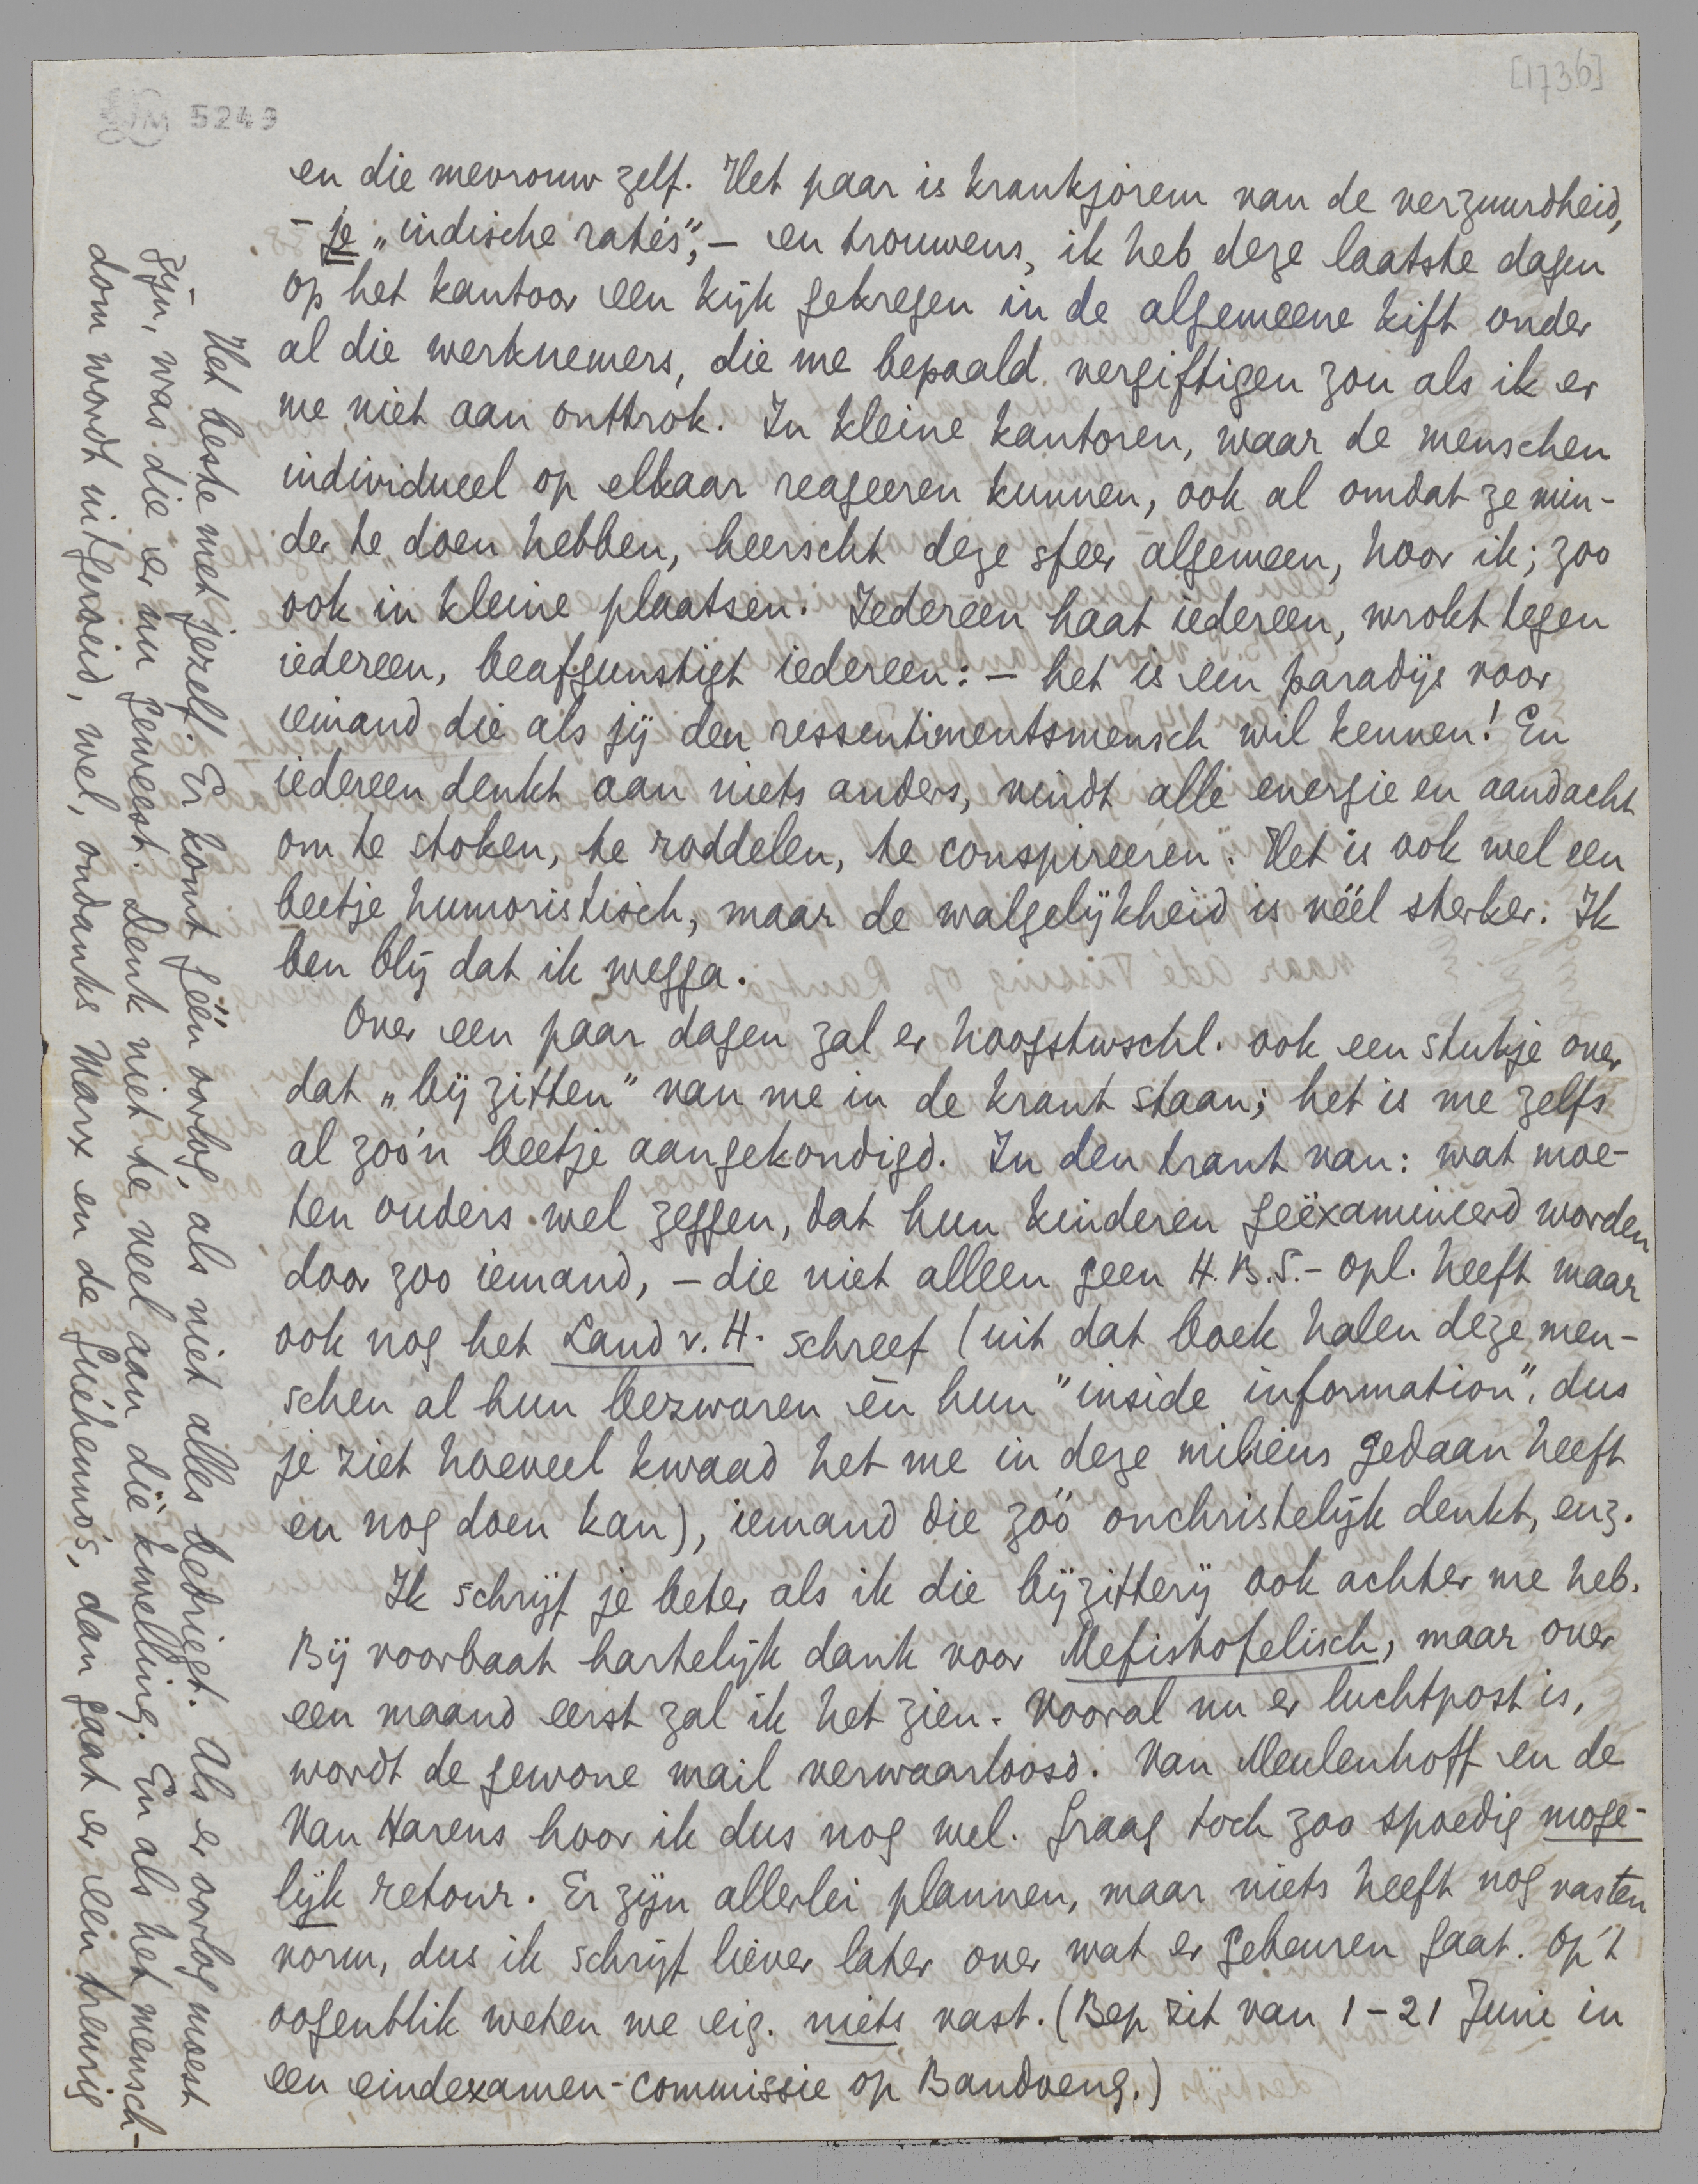 [1736]
5249
en die mevrouw zelf. Het paar is krankjorem van de verzuurdheid,
– je „indische ratés”, – en trouwens, ik heb deze laatste dagen
op het kantoor een kijk gekregen in de algemeene kift onder
al die werknemers, die me bepaald vergiftigen zou als ik er
me niet aan onttrok. In kleine kantoren, waar de menschen
individueel op elkaar reageeren kunnen, ook al omdat ze min-
der te doen hebben, heerscht deze sfeer algemeen, hoor ik; zoo
ook in kleine plaatsen. Iedereen haat iedereen, wrokt tegen
iedereen, beafgunstigt iedereen: – het is een paradijs voor
iemand die als jij den ressentimentsmensch wil kennen! En
iedereen denkt aan niets anders, vindt alle energie en aandacht
om te stoken, te roddelen, te conspireeren. Het is ook wel een
beetje humoristisch, maar de walgelijkheid is véél sterker. Ik
ben blij dat ik wegga.
Over een paar dagen zal er hoogstwschl. ook een stukje over
dat „bijzitten” van me in de krant staan; het is me zelfs
al zoo'n beetje aangekondigd. In den trant van: wat moe-
ten ouders wel zeggen, dat hun kinderen geëxamineerd worden
door zoo iemand, – die niet alleen geen H.B.S.- opl. heeft maar
ook nog het Land v. H. schreef (uit dat boek halen deze men-
schen al hun bezwaren èn hun "inside information", dus
je ziet hoeveel kwaad het me in deze milieus gedaan heeft
en nog doen kan), iemand die zóó onchristelijk denkt, enz.
Ik schrijf je beter als ik die bijzitterij ook achter me heb.
Bij voorbaat hartelijk dank voor Mefistofelisch, maar over
een maand eerst zal ik het zien. Vooral nu er luchtpost is,
wordt de gewone mail verwaarloosd. Van Meulenhoff en de
Van Harens hoor ik dus nog wel. Graag toch zoo spoedig moge-
lijk retour. Er zijn allerlei plannen, maar niets heeft nog vasten
vorm, dus ik schrijf liever later over wat er gebeuren gaat. Op 't
oogenblik weten we eig. niets vast. (Bep zit van 1 – 21 Juni in
een eindexamen-commissie op Bandoeng.)
Het beste met jezelf. Er komt géén oorlog, als niet alles bedriegt. Als er oorlog moest
zijn, was die er nu geweest. Denk niet te veel aan die kwelling. En als het mensch-
dom wordt uitgeroeid, wel, ondanks Marx en de Guéhenno's, dan gaat er een treurig